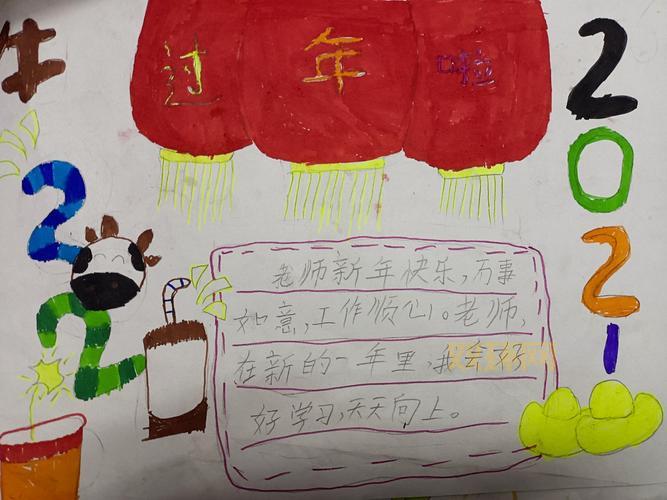 过年啦
牛
2021
2
2
老师新年快乐,万事
如意,工作顺心。老师,
在新的一年里,我会好
好学习,天天向上。